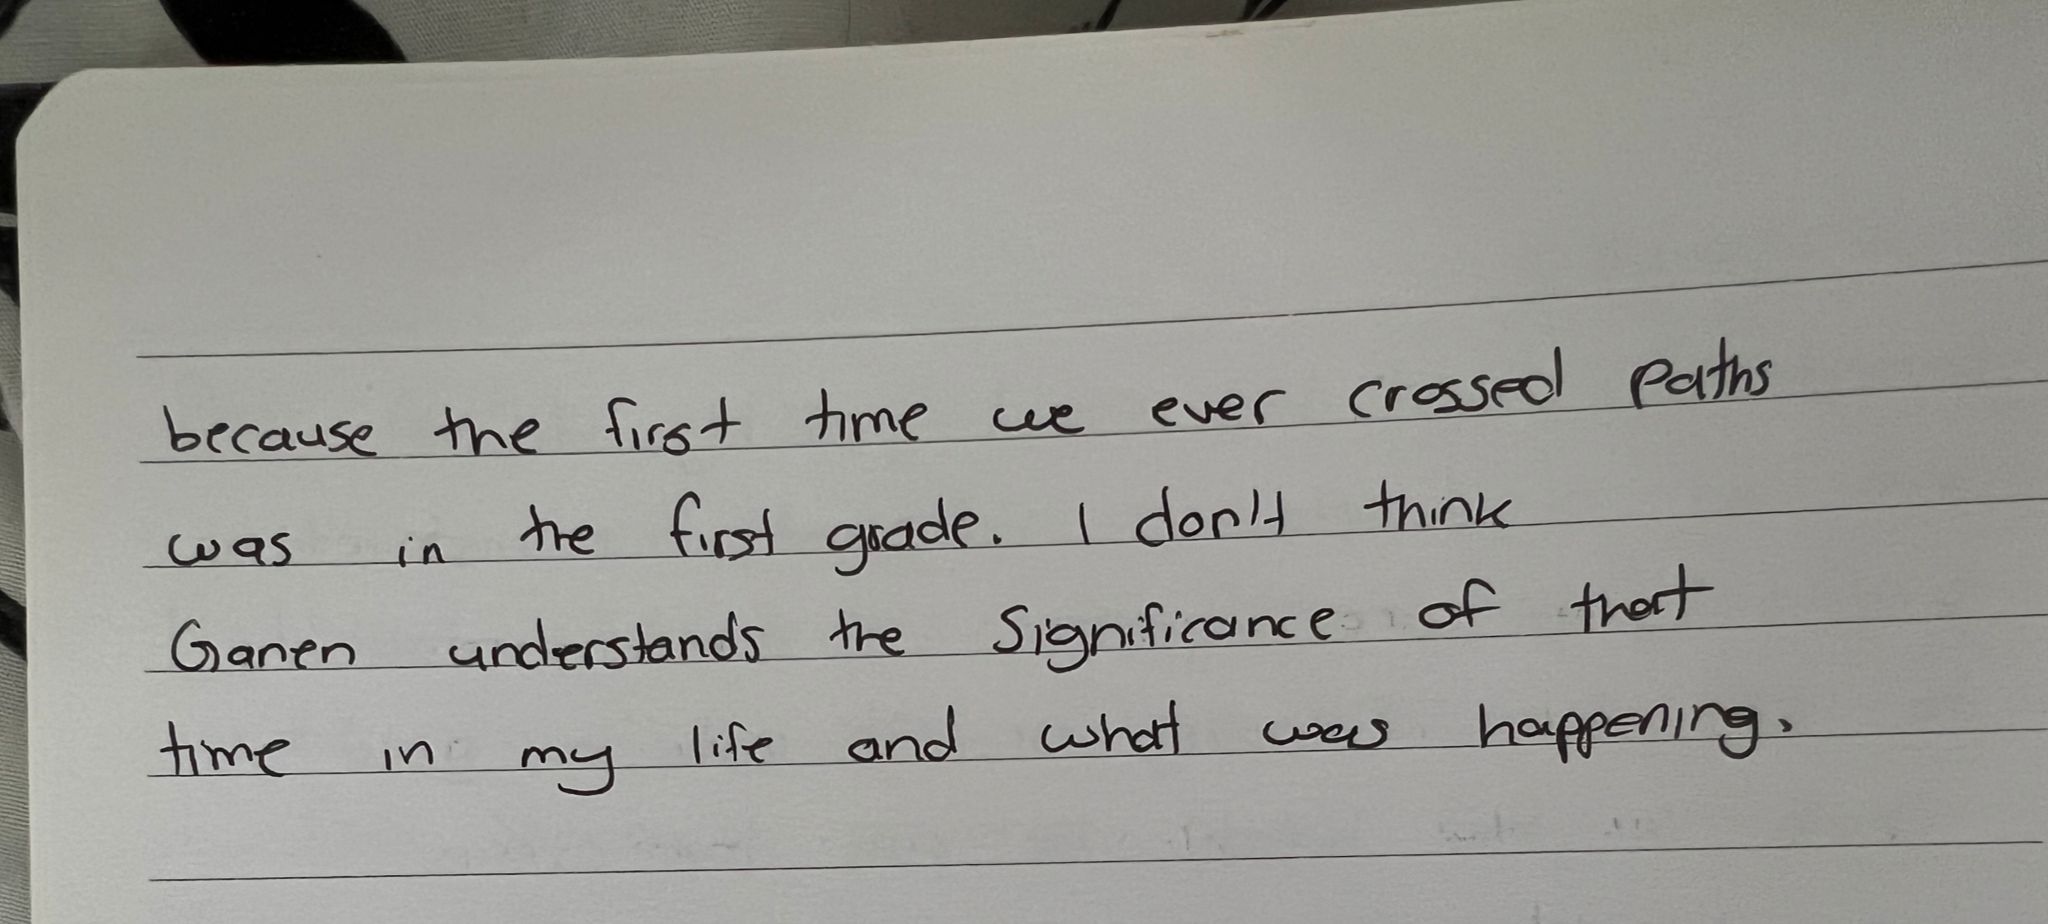 because the first time we ever crossed paths
was in the first grade. I don't think
Ganen understands the significance of that
time in my life and what was happening.